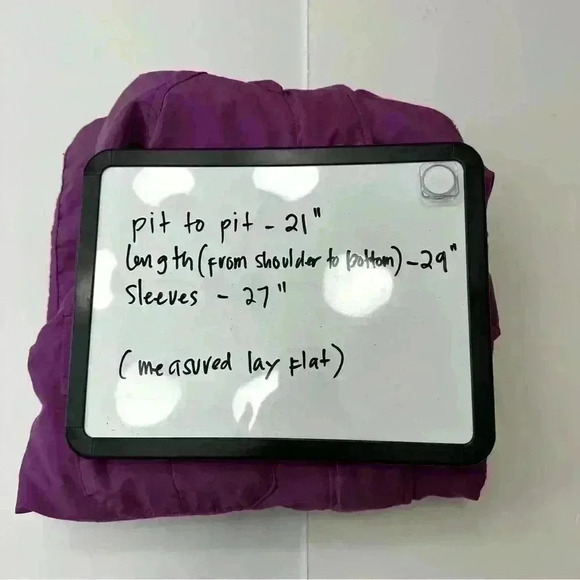 pit to pit - 21"
Length (from shoulder to bottom) - 29"
Sleeves - 27"
(measured lay flat)